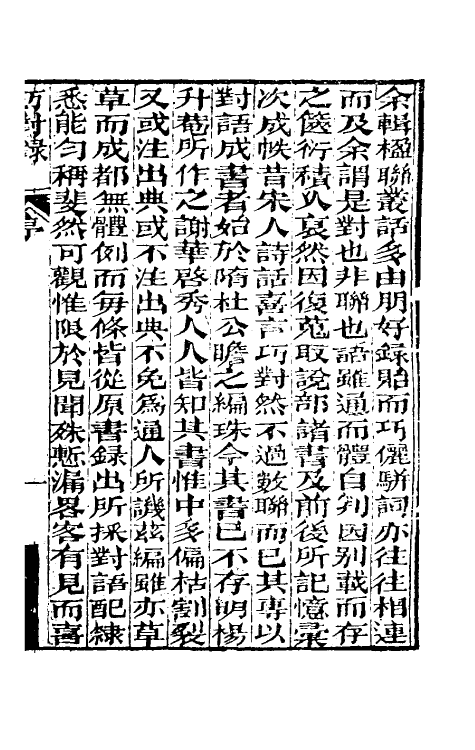 余輯楹聯叢話多由朋好錄貽而巧儷駢詞亦往往相連
而及余謂是對也非聯也語雖通而體自判因别載而存
之篋衍積久裒然因復蒐取說部諸書及前後所記憶彙
次成帙昔宋人詩話喜言巧對然不過數聯而已其專以
對語成書者始於隋杜公瞻之編珠今其書已不存明楊
升菴所作之謝華啓秀人人皆知其書惟中多偏枯割裂
又或注出典或不注出典不免為通人所譏茲編雖亦草
草而成都無體例而每條皆從原書錄出所採對語配隸
悉能勻稱斐然可觀惟限於見聞殊慙漏畧客有見而喜
巧對錄
序
一